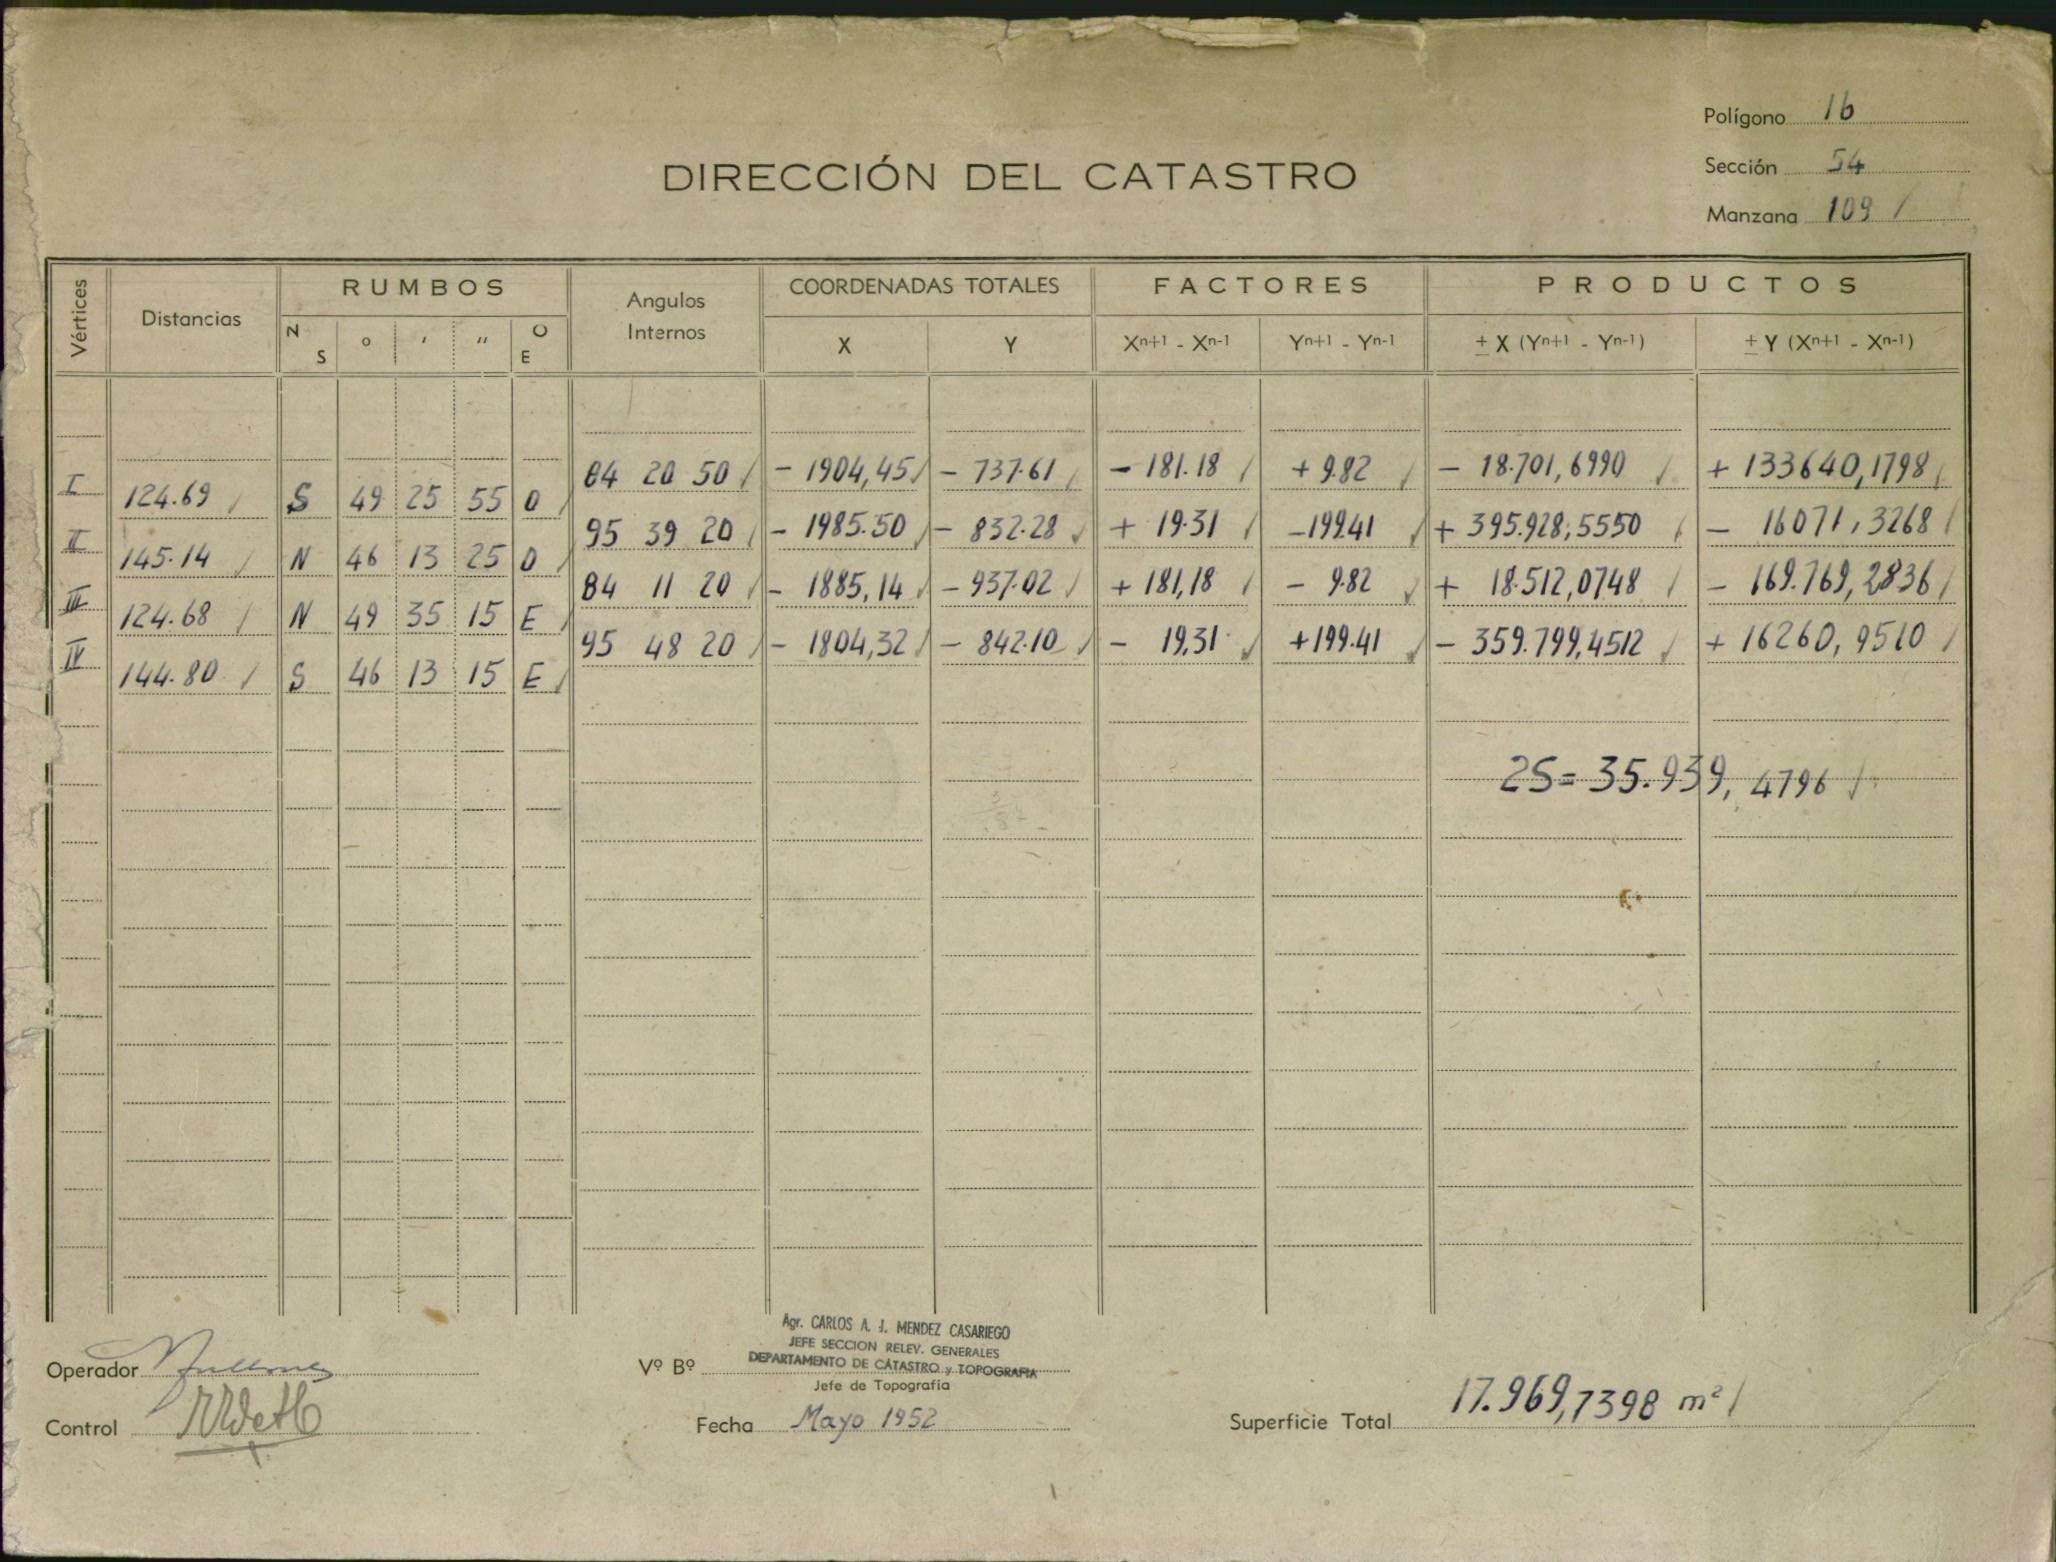 Polígono 16
DIRECCIÓN DEL CATASTRO
Sección 54
Manzana 109
Vértices Distancias RUMBOS Angulos Internos COORDENADAS TOTALES FACTORES PRODUCTOS
N S ° ' " O E X Y Xn+1 - Xn-1 Yn+1 - Yn-1 ± X (Yn+1 - Yn-1) ± Y (Xn+1 - Xn-1)
I 84 20 50 - 1904,45 - 737.61 - 181.18 + 9.82 - 18.701,6990 + 133640,1798
124.69 S 49 25 55 O
II 95 39 20 - 1985.50 - 832.28 + 19.31 - 199.41 + 395.928,5550 - 16071,3268
145.14 N 46 13 25 O
III 84 11 20 - 1885,14 - 937.02 + 181,18 - 9.82 + 18.512,0748 - 169.769,2836
124.68 N 49 35 15 E
IV 95 48 20 - 1804,32 - 842.10 - 19,31 + 199.41 - 359.799,4512 + 16260,9510
144.80 S 46 13 15 E
2S= 35.939,4796
Agr. CARLOS A. J. MENDEZ CASARIEGO
JEFE SECCION RELEV. GENERALES
Operador Vº Bº DEPARTAMENTO DE CATASTRO y TOPOGRAFIA
Jefe de Topografía
Control Fecha Mayo 1952 Superficie Total 17.969,7398 m²